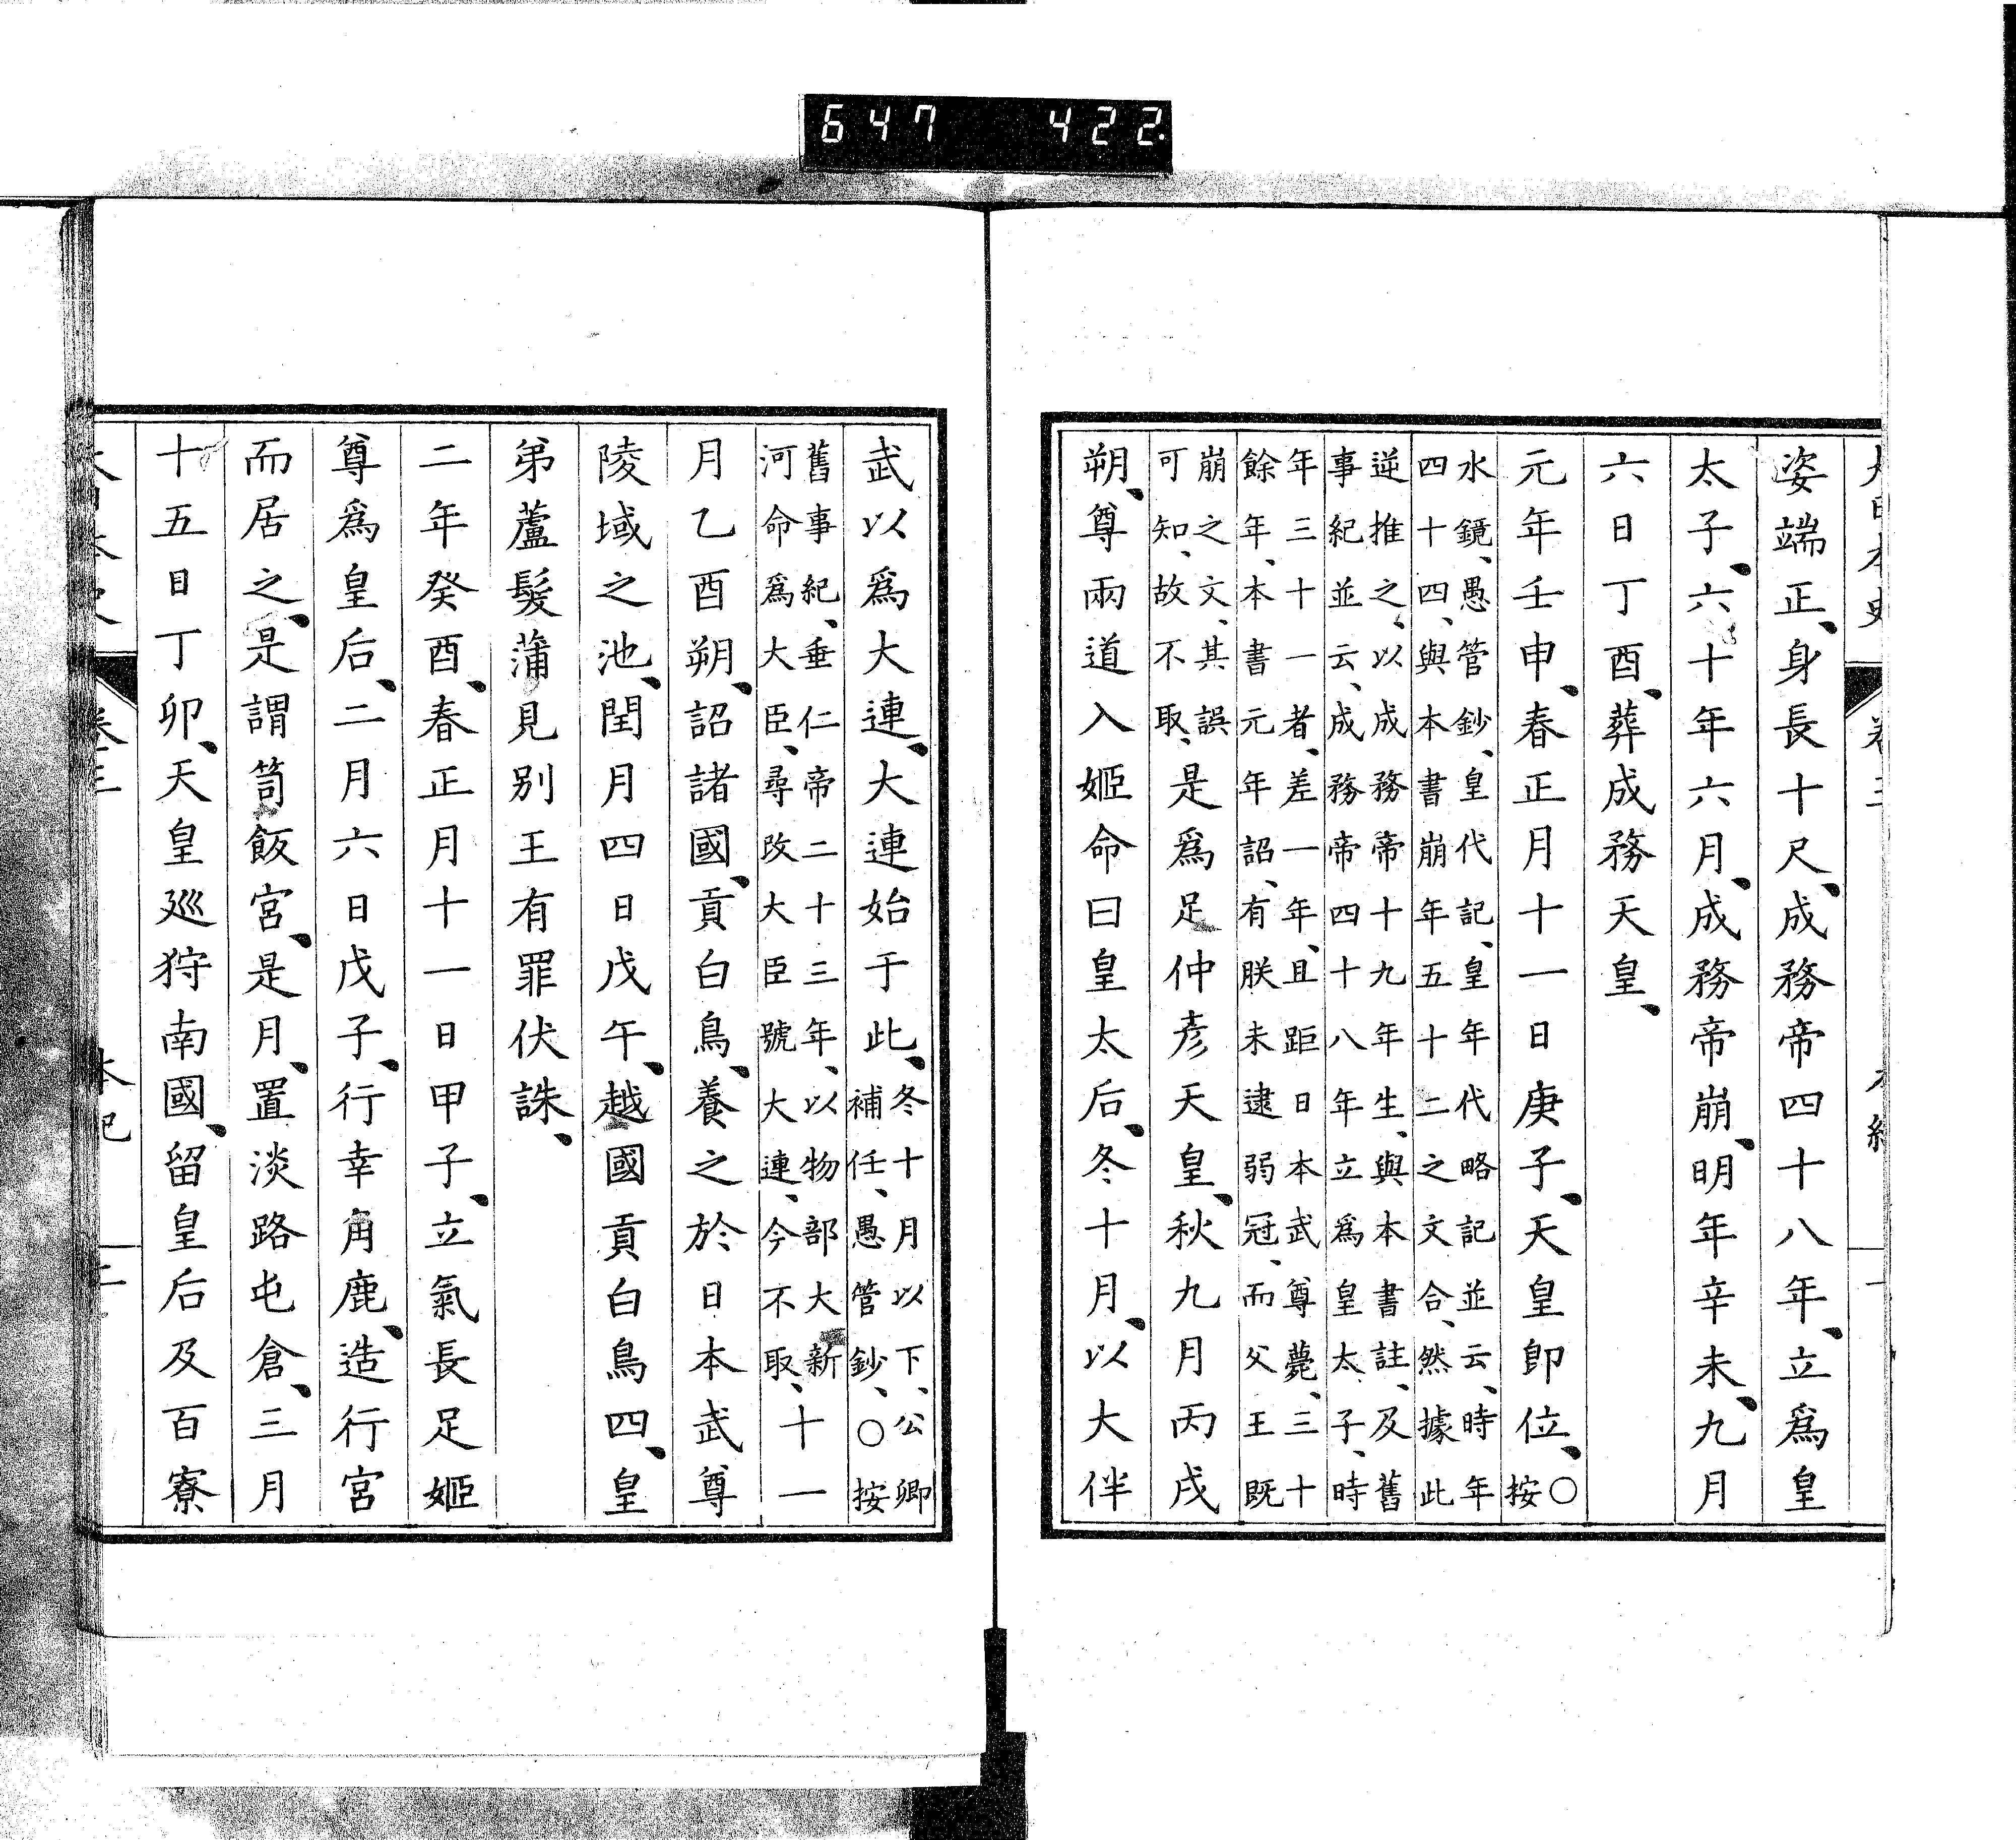 647 422
大日本史 卷三
姿端正、身長十尺、成務帝四十八年、立爲皇
太子、六十年六月、成務帝崩、明年辛未、九月
六日丁酉、葬成務天皇、
元年壬申、春正月十一日庚子、天皇卽位、○按
水鏡、愚管鈔、皇代記、皇年代略記並云、時年
四十四、與本書崩年五十二之文合、然據此
逆推之、以成務帝十九年生、與本書註、及舊
事紀並云、成務帝四十八年立爲皇太子、時
年三十一者、差一年、且距日本武尊薨、三十
餘年、本書元年詔、有朕未逮弱冠、而父王既
崩之文、其誤
可知、故不取、是爲足仲彦天皇、秋九月丙戌
朔、尊兩道入姬命曰皇太后、冬十月、以大伴
武以爲大連、大連始于此、冬十月以下、公卿
補任、愚管鈔、○按
舊事紀、垂仁帝二十三年、以物部大新
河命爲大臣、尋改大臣號大連、今不取、十一
月乙酉朔、詔諸國、貢白鳥、養之於日本武尊
陵域之池、閏月四日戊午、越國貢白鳥四、皇
弟蘆髮蒲見別王有罪伏誅、
二年癸酉、春正月十一日甲子、立氣長足姬
尊爲皇后、二月六日戊子、行幸角鹿、造行宮
而居之、是謂笥飯宮、是月、置淡路屯倉、三月
十五日丁卯、天皇巡狩南國、留皇后及百寮
大日本史 卷三 本紀